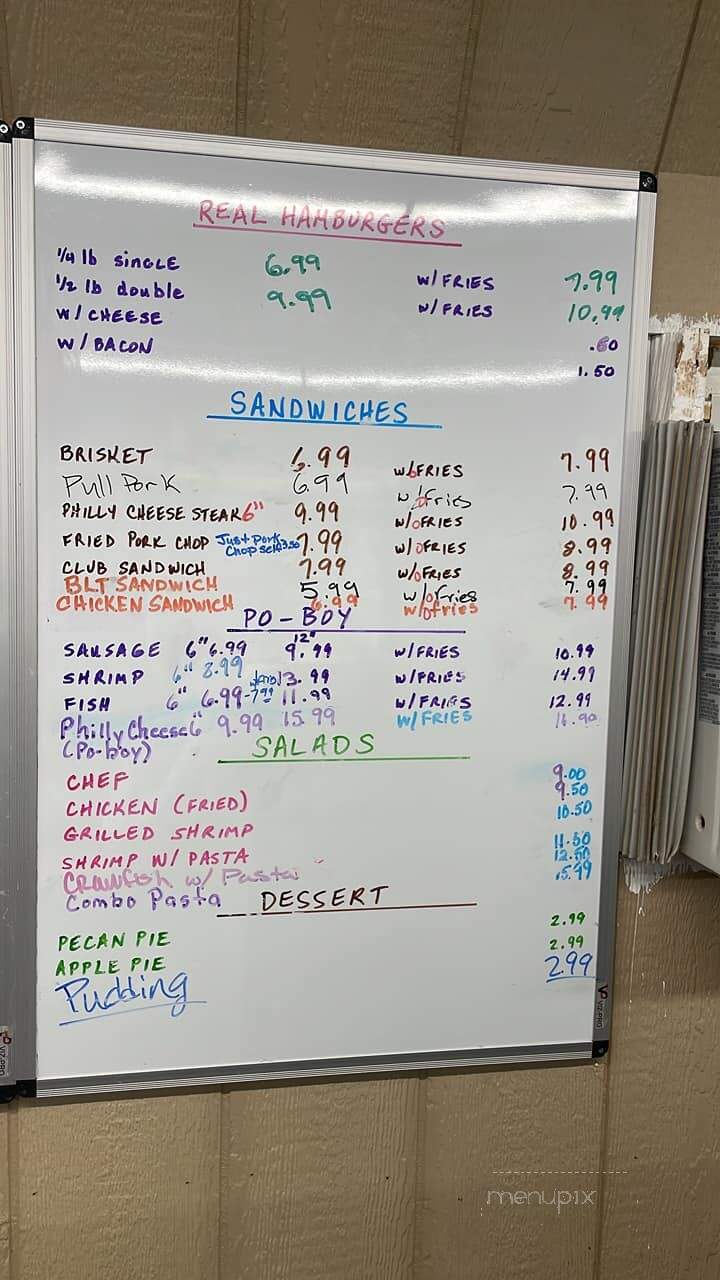 REAL HAMBURGERS
1/4 lb SINGLE 6.99 W/FRIES 7.99
1/2 lb double 9.99 W/FRIES 10.99
W/CHEESE .60
W/BACON 1.50
SANDWICHES
BRISKET 6.99 W/FRIES 7.99
Pull Pork 6.99 w/Fries 7.99
PHILLY CHEESE STEAK 6" 9.99 W/FRIES 10.99
FRIED PORK CHOP Just Pork Chop 7.99 W/FRIES 8.99
CLUB SANDWICH 7.99 W/FRIES 8.99
BLT SANDWICH 5.99 w/Fries 7.99
CHICKEN SANDWICH 6.99 w/fries 7.99
PO-BOY
SAUSAGE 6" 6.99 12" 9.99 W/FRIES 10.99
SHRIMP 6" 8.99 13.99 W/FRIES 14.99
FISH 6" 6.99-7.99 11.99 W/FRIES 12.99
Philly Cheese 6" 9.99 15.99 W/FRIES 16.99
(Po-boy)
SALADS
CHEF 9.00
CHICKEN (FRIED) 9.50
GRILLED SHRIMP 10.50
SHRIMP W/ PASTA 11.50
CRAWFish w/ Pasta 12.50
Combo Pasta 15.99
DESSERT
PECAN PIE 2.99
APPLE PIE 2.99
Pudding 2.99
VIZ-PRO
VIZ-PRO
menupix